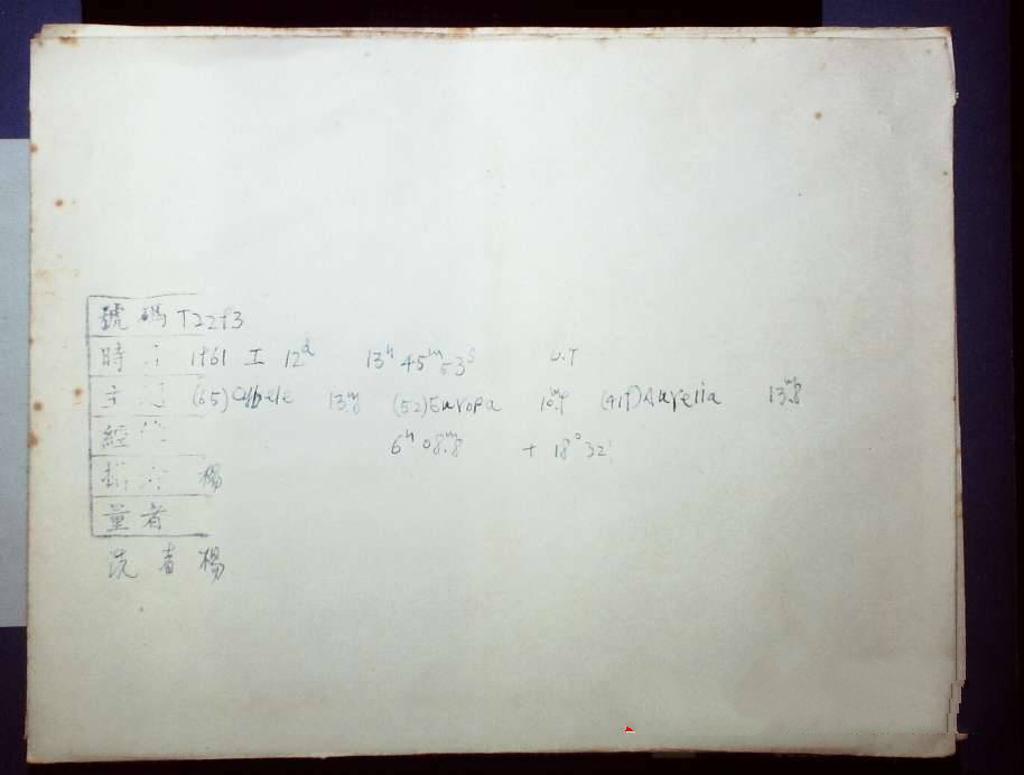 號碼 T2293
時 1961 I 12ᵈ 13ʰ 45ᵐ 53ˢ U.T
主 (65) Cybele 13ᵐ.8 (52) Europa 10ᵐ.9 (419) Aurelia 13ᵐ.8
經 6ʰ 08ᵐ.8 + 18° 32'
楊
量者
洗者 楊